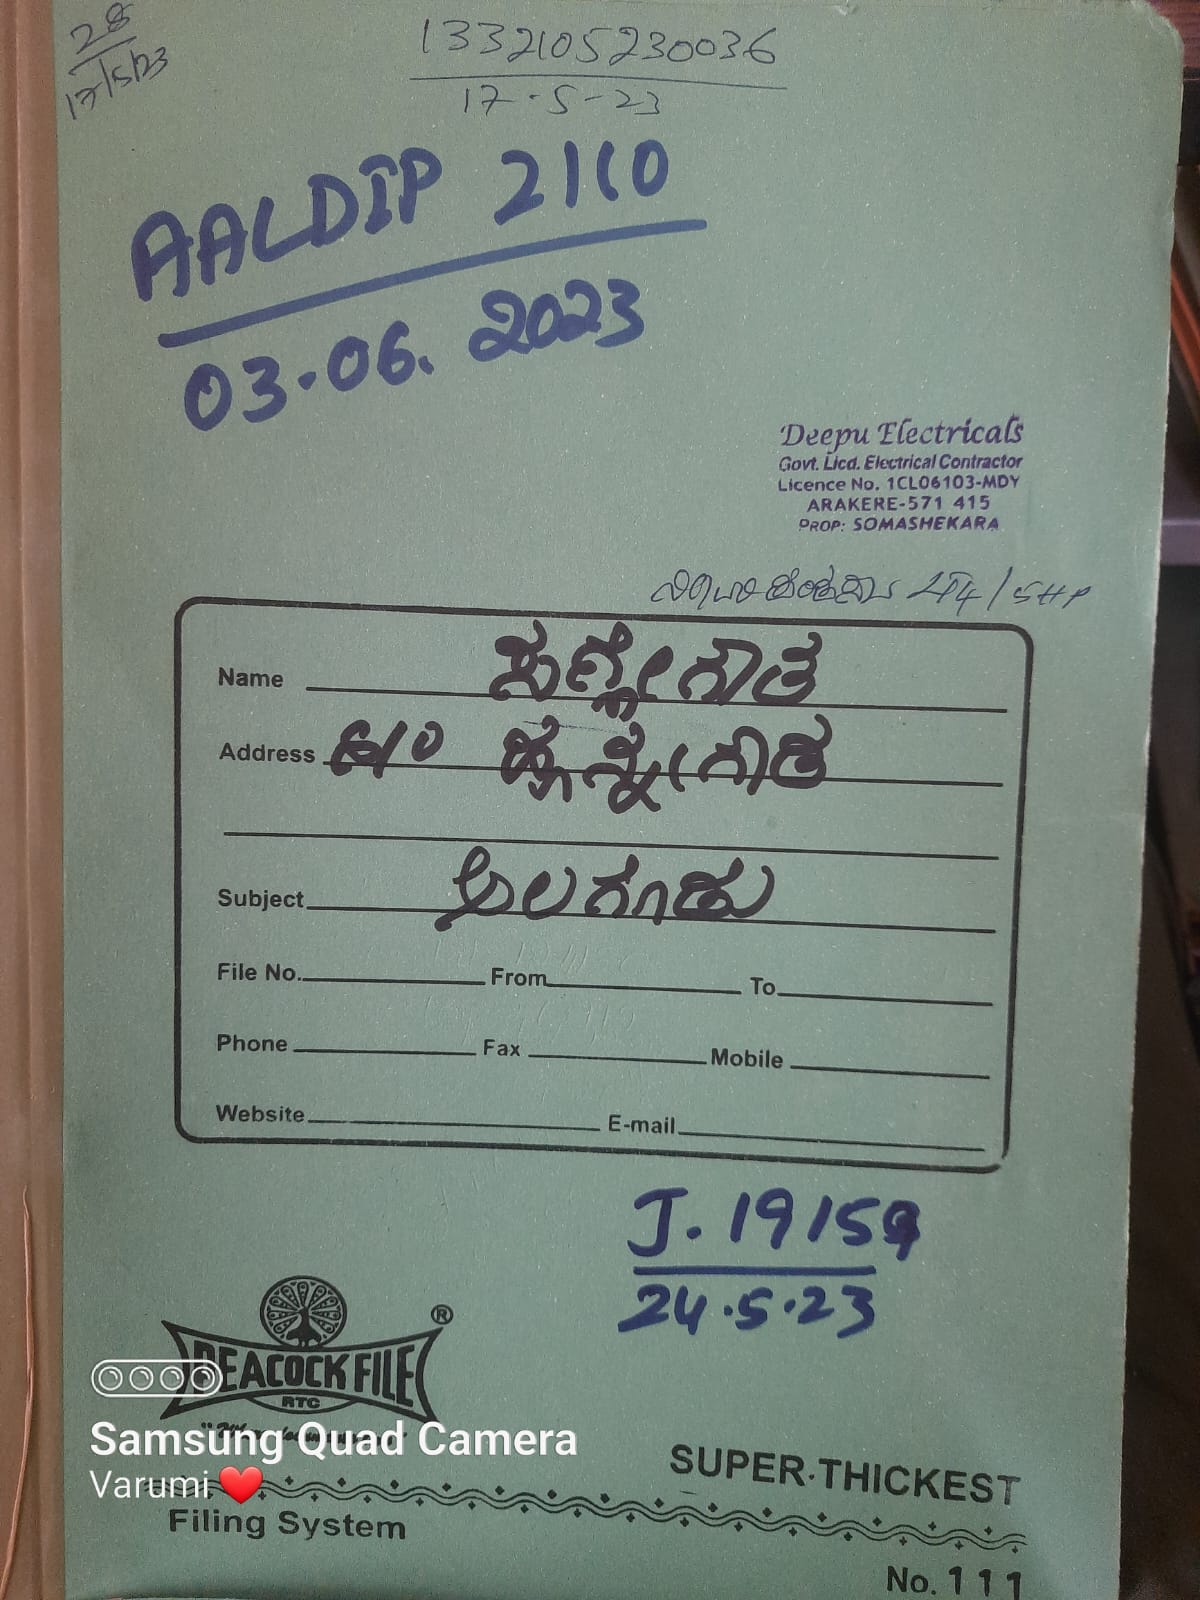 28
17/5/23
1332105230036
17-5-23
AALDIP 2110
03.06.2023
Deepu Electricals
Govt. Licd. Electrical Contractor
Licence No. 1CL06103-MDY
ARAKERE-571 415
PROP: SOMASHEKARA
/5HP
Name
Address
Subject
File No. From To
Phone Fax Mobile
Website E-mail
J. 19159
24.5.23
PEACOCK FILE ®
RTC
Samsung Quad Camera
Varumi ❤️
SUPER-THICKEST
Filing System
No. 111